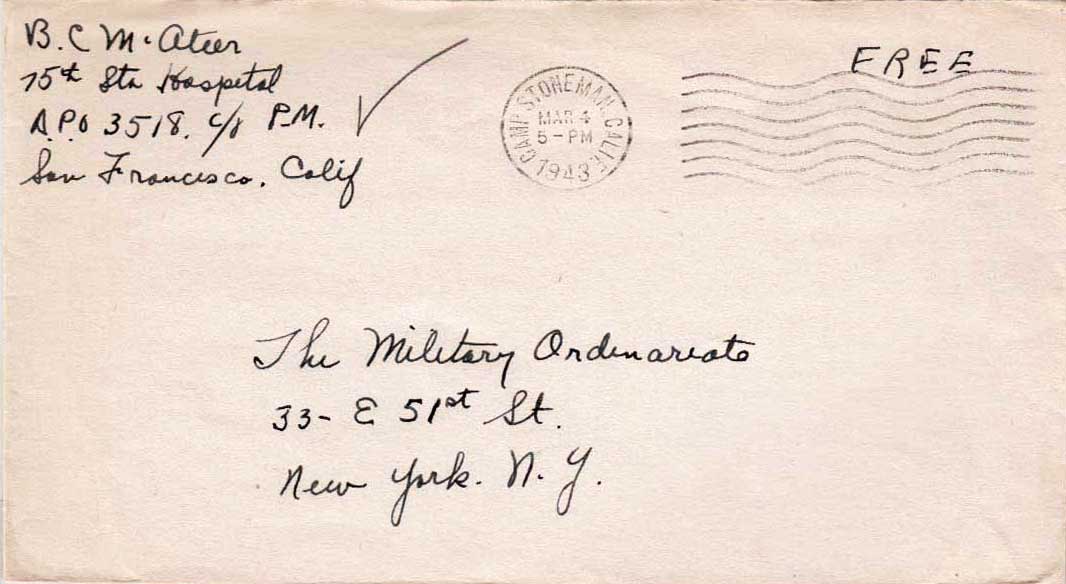 B. C McAteer
75th Sta Hospital
A.P.O 3518. c/o P.M.
San Francisco, Calif
CAMP STONEMAN, CALIF.
MAR 4
5-PM
1943
FREE
The Military Ordinariate
33- E 51st St.
New York. N. Y.